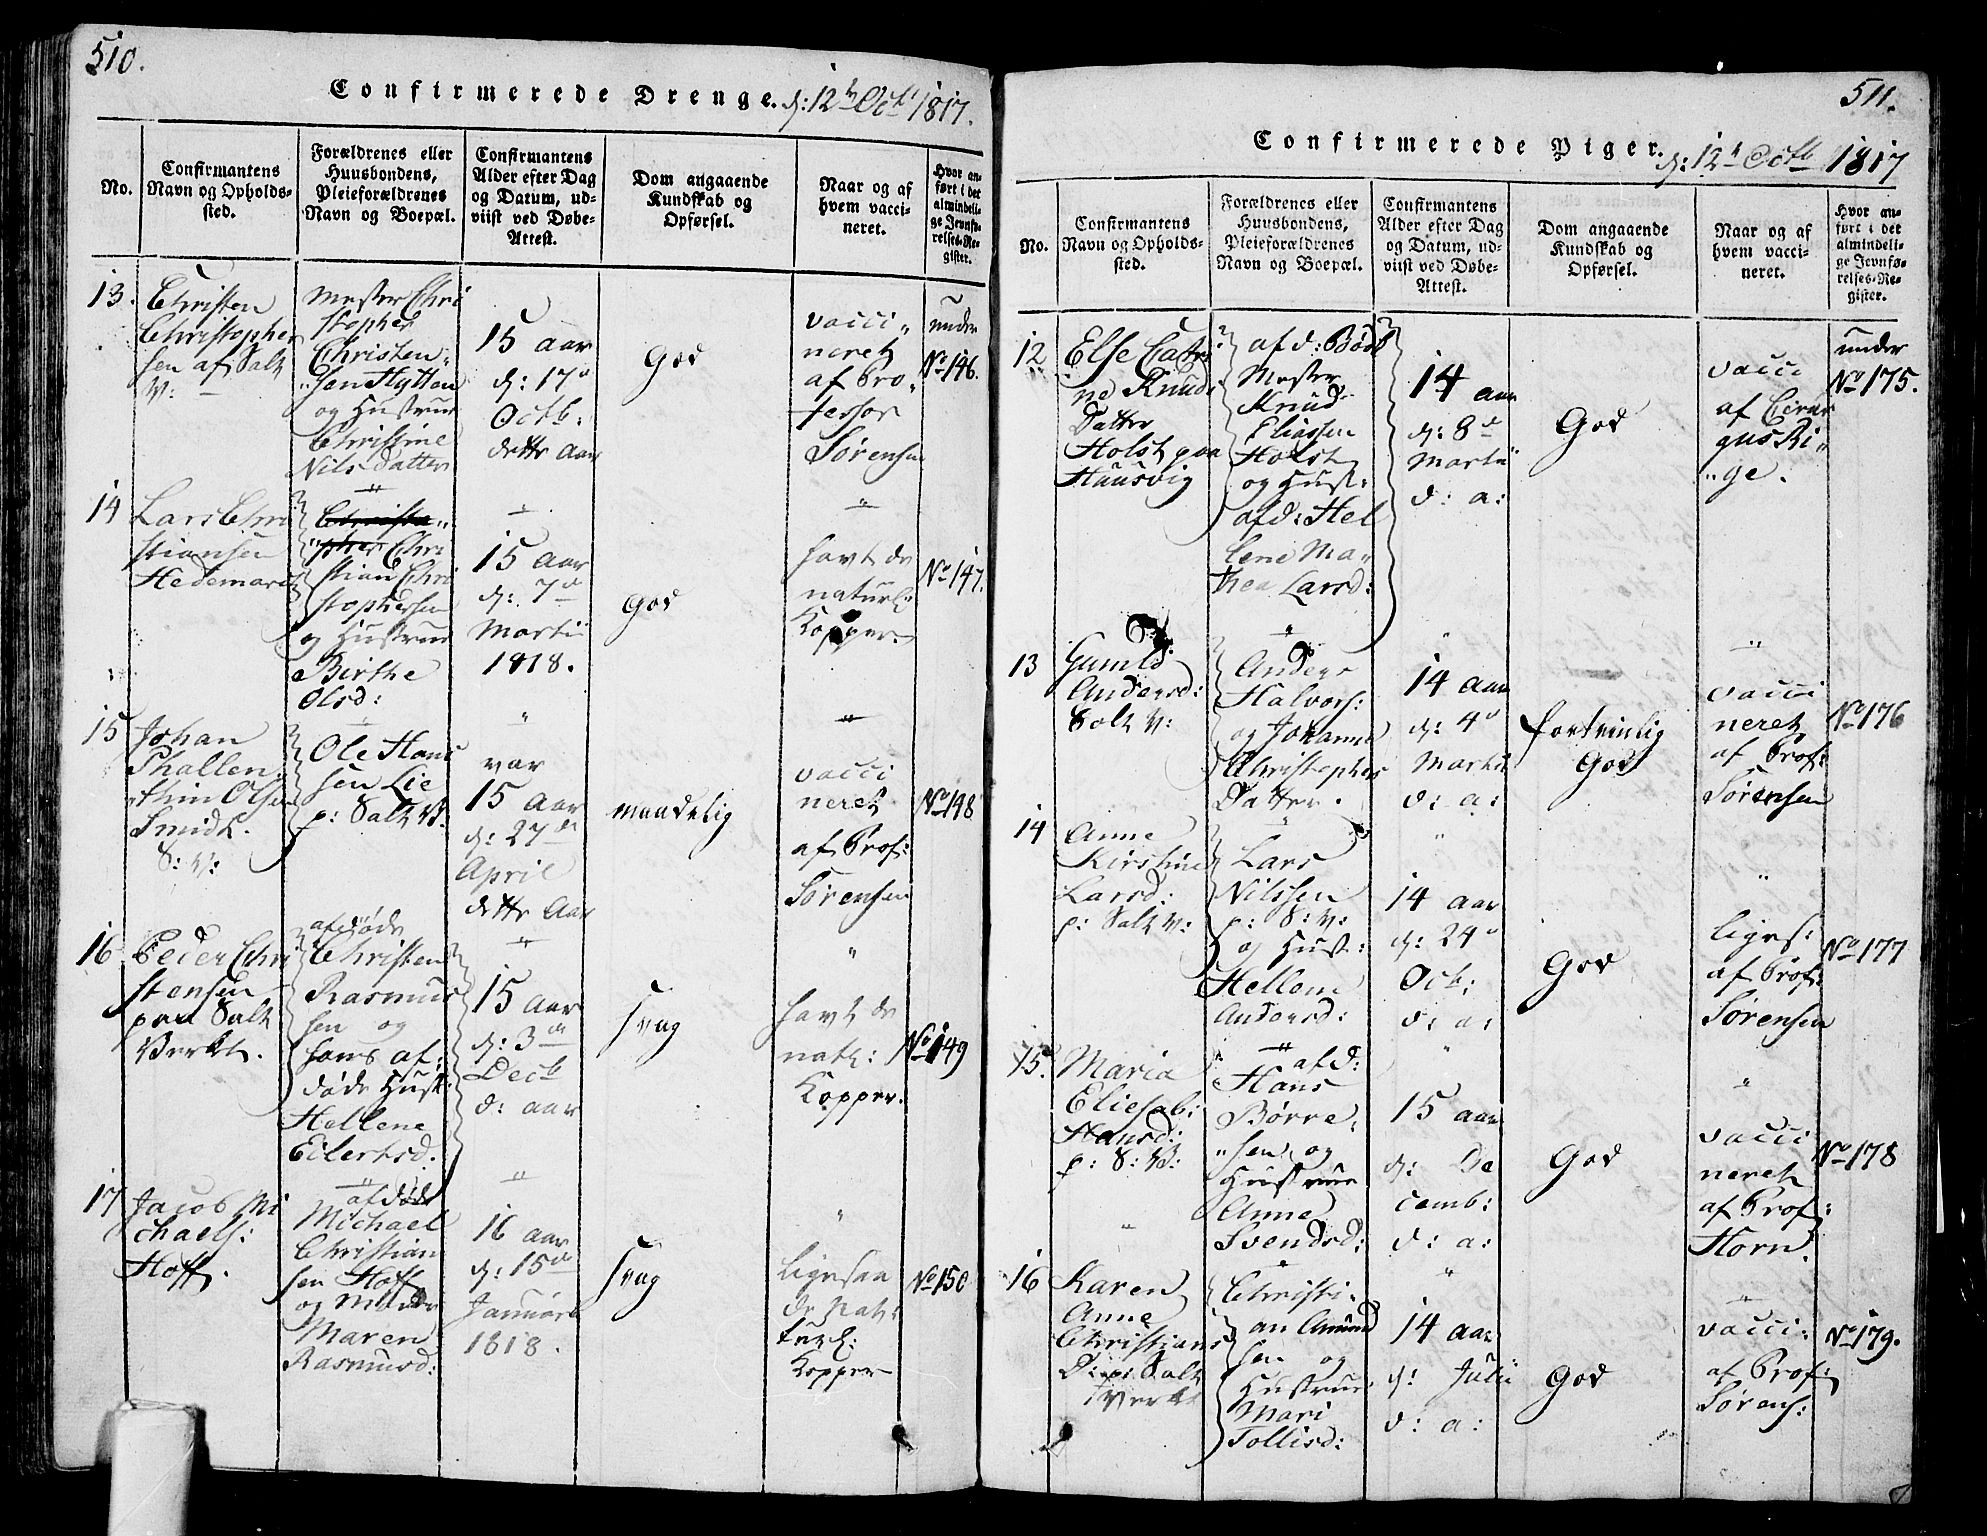 510.
Confirmerede Drenge. d: 12te Oct: 1817.
No.
Confirmantens
Navn og Opholds-
sted.
Forældrenes eller
Huusbondens,
Pleieforældrenes
Navn og Boepæl.
Confirmantens
Alder efter Dag
og Datum, ud-
viist ved Døbe-
Attest.
Dom angaaende
Kundskab og
Opførsel.
Naar og af
hvem vacci-
neret.
Hvor an-
ført i det
almindeli-
ge Jevnfø-
relses-Re-
gister.
13.
Christen
Christopher
sen af Salt
V:
Mester Chri
stopher
Christen„
„sen Hytten
og Hustrue
Christine
Nils Datter
15 aar
d: 17d
Octb:
dette Aar
God
vacci„
neret
af Pro„
fessor
Sørensen
under
No 146.
14
Lars Chri
stiansen
Hedemark
Christo„
„pher Chri
stian Chri
stophersen
og Hustrue
Birthe
Olsd:
15 aar
d: 7de
Martii
1818.
God
havt de
naturl:
Kopper
No 147.
15
Johan
Thallen„
„thin Olsen
Smidt.
S: V:
Ole Hans
sen Lie
p: Salt V.
var
15 aar
d: 27de
April
dette Aar
maadelig
vacci
neret
af Prof:
Sørensen
No 148
16
Peder Chri
stensen
paa Salt
Verket.
afdøde
Christen
Rasmus
sen og
hans af„
døde Hust:
Hellene
Eilertsd:
15 aar
d: 3de
Decb
d: aar
svag
havt de
natl:
Kopper.
No 149
17
Jacob Mi
chaels:
Hoff.
afdøde
Michael
Christian
sen Hoff
og Moder
Maren
Rasmusd:
16 aar
d: 15de
Januarii
1818.
svag
ligesaa
de Nat„
turl:
Kopper
No 150
511.
Confirmerede Piger. d: 12te Octb 1817
No.
Confirmantens
Navn og Opholds-
sted.
Forældrenes eller
Huusbondens,
Pleieforældrenes
Navn og Boepæl.
Confirmantens
Alder efter Dag
og Datum, ud-
viist ved Døbe-
Attest.
Dom angaaende
Kundskab og
Opførsel.
Naar og af
hvem vacci-
neret.
Hvor an-
ført i det
almindeli-
ge Jevnfø-
relses-Re-
gister.
12
Else Catri
ne Knuds
Datter
Holst paa
Haasvig
afd: Bød
Mester
Knud
Eliassen
Holst
og Hust:
afd: Hel
lene Ma„
thea Larsd:
14 aar
d: 8de
Martii
d: a:
God
vacci
af Cirur
gus Ri„
„ge.
under
No 175.
13
Gunild
Andersd:
Salt V:
Anders
Halvors:
og Johanne
Christopher
Datter.
14 aar
d: 4de
Martii
d: a:
fortrinlig
God
vacci
neret
af Prof:
Sørensen
No 176
14
Anne
Kirstine
Larsd:
p: Salt V:
Lars
Nilssen
p: S: V:
og Hust:
Hellene
Andersd:
14 aar
d: 24de
Octb:
d: a:
God
liges:
af Prof:
Sørensen
No 177
15.
Maria
Eliesab:
Hansd:
p: S: V:
afd:
Hans
Børre„
„sen og
Hustrue
Anne
Svendsd:
15 aar
d: De
cemb:
d: a:
God
vacci
neret
af Prof:
Horn.
No 178
16
Karen
Anne
Christians
D: p: Salt
Verket
Christi„
an Amund
sen og
Hustrue
Mari
Tollisd:
14 aar
d: Julii
d: a:
God
vacci:
af Prof:
Sørens:
No 179.